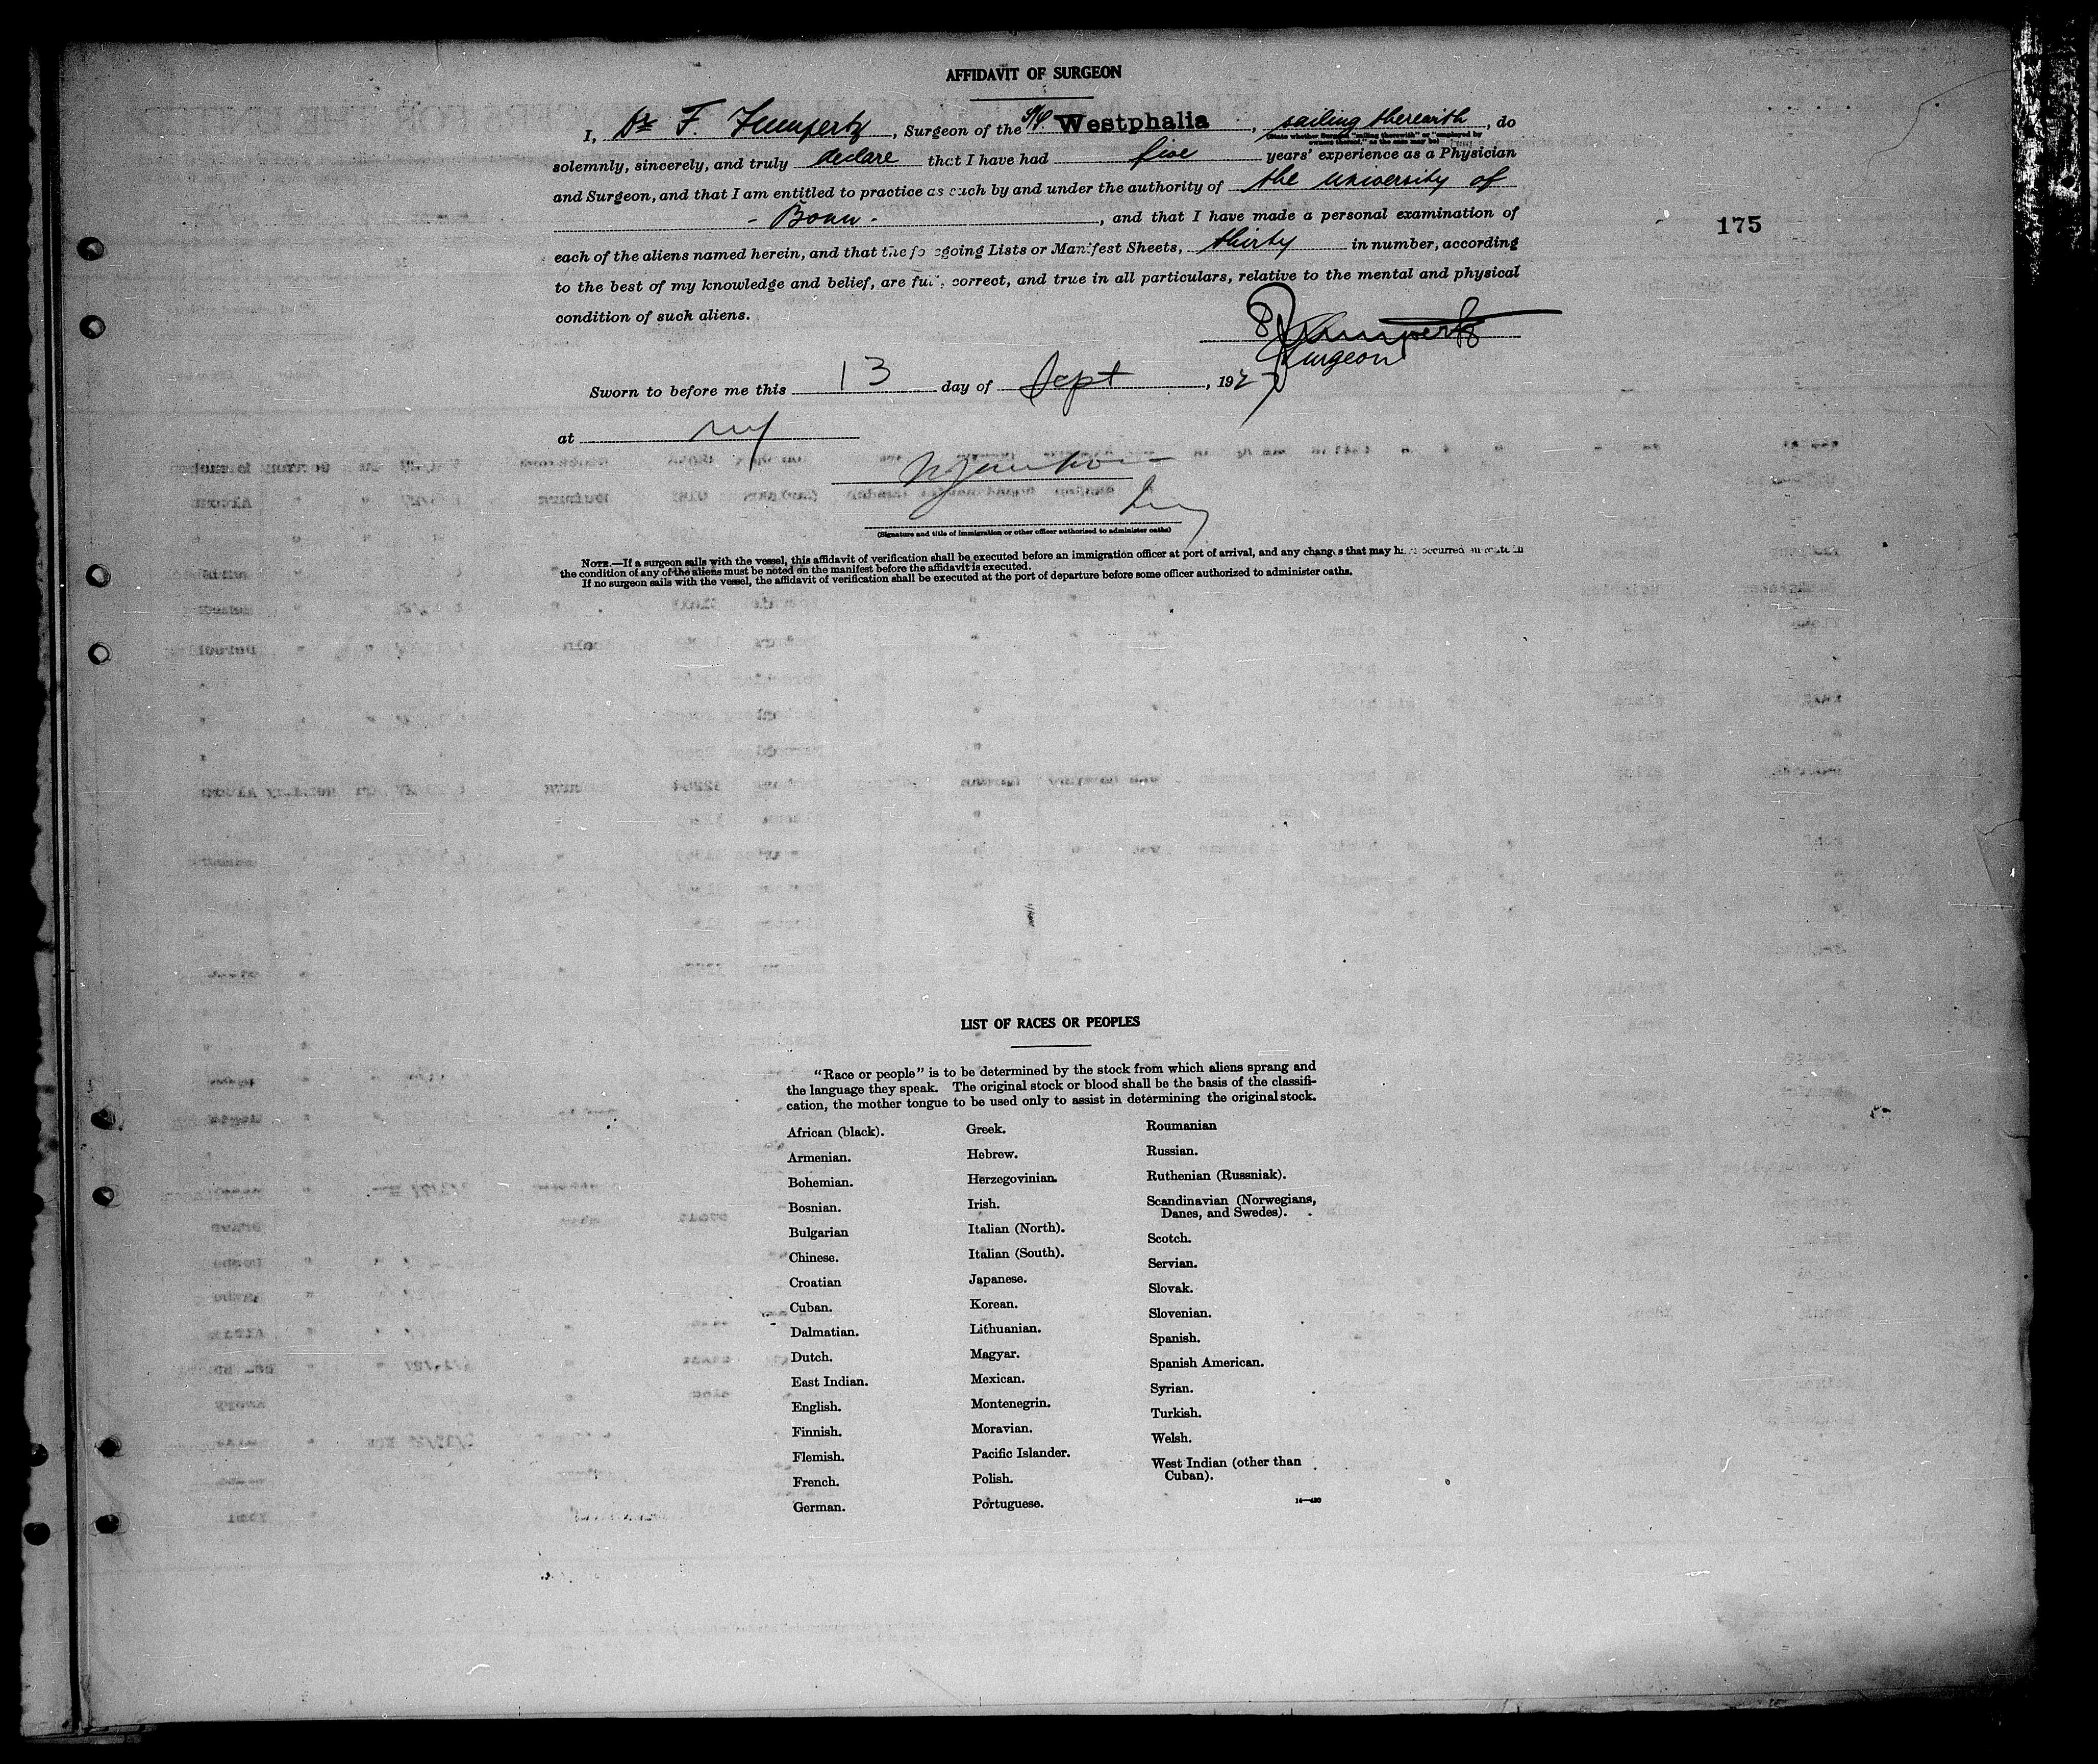 AFFIDAVIT OF SURGEON
I, Dr F. , Surgeon of the Westphalia, sailing therewith, do
(State whether Surgeon "sailing therewith" or "employed by
owners thereof," as the case may be)
solemnly, sincerely, and truly declare that I have had five years' experience as a Physician
and Surgeon, and that I am entitled to practice as such by and under the authority of the university of
- Bonn - , and that I have made a personal examination of
175
each of the aliens named herein, and that the foregoing Lists or Manifest Sheets, thirty in number, according
to the best of my knowledge and belief, are full, correct, and true in all particulars, relative to the mental and physical
condition of such aliens.
Surgeon
Sworn to before me this 13 day of Sept, 1927
at NY
(Signature and title of immigration or other officer authorized to administer oaths)
NOTE.—If a surgeon sails with the vessel, this affidavit of verification shall be executed before an immigration officer at port of arrival, and any changes that may have occurred en route in
the condition of any of the aliens must be noted on the manifest before the affidavit is executed.
If no surgeon sails with the vessel, the affidavit of verification shall be executed at the port of departure before some officer authorized to administer oaths.
LIST OF RACES OR PEOPLES
"Race or people" is to be determined by the stock from which aliens sprang and
the language they speak. The original stock or blood shall be the basis of the classifi-
cation, the mother tongue to be used only to assist in determining the original stock.
African (black).
Armenian.
Bohemian.
Bosnian.
Bulgarian
Chinese.
Croatian
Cuban.
Dalmatian.
Dutch.
East Indian.
English.
Finnish.
Flemish.
French.
German.
Greek.
Hebrew.
Herzegovinian.
Irish.
Italian (North).
Italian (South).
Japanese.
Korean.
Lithuanian.
Magyar.
Mexican.
Montenegrin.
Moravian.
Pacific Islander.
Polish.
Portuguese.
Roumanian
Russian.
Ruthenian (Russniak).
Scandinavian (Norwegians,
Danes, and Swedes).
Scotch.
Servian.
Slovak.
Slovenian.
Spanish.
Spanish American.
Syrian.
Turkish.
Welsh.
West Indian (other than
Cuban).
14—430